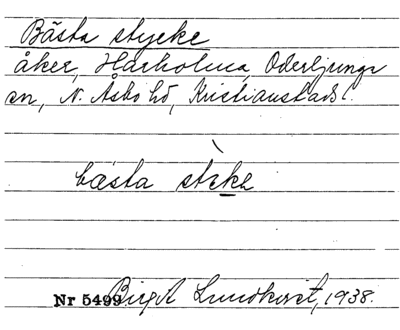 Bästa stycke
åker, Harholma, Oderljunga
sn, N. Åsbo hd, Kristianstads l.
bæsta stẹkə
Nr 5499 Birgit Lundkvist, 1938.